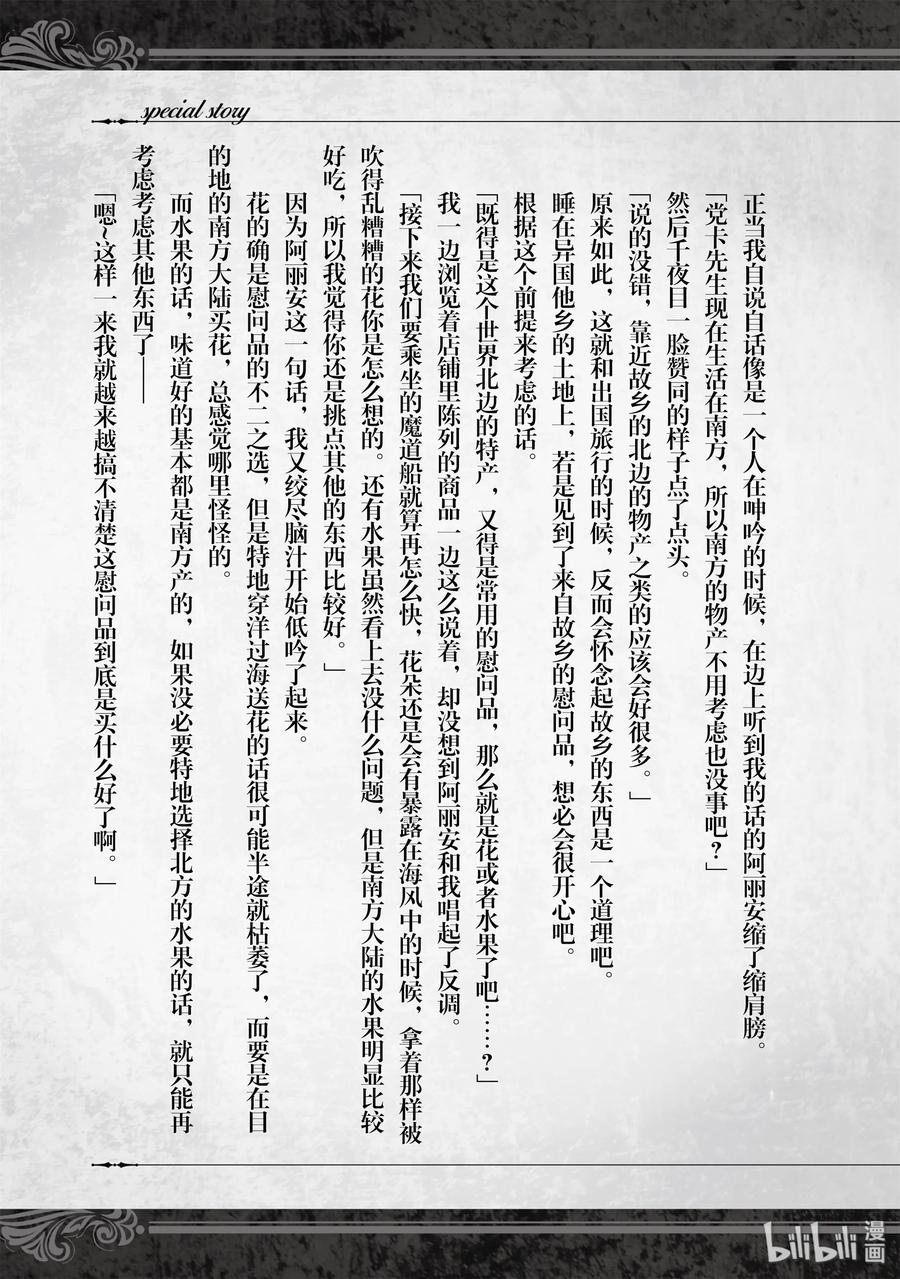 special story
正当我自说自话像是一个人在呻吟的时候，在边上听到我的话的阿丽安缩了缩肩膀。
「党卡先生现在生活在南方，所以南方的物产不用考虑也没事吧？」
然后千夜目一脸赞同的样子点了点头。
「说的没错，靠近故乡的北边的物产之类的应该会好很多。」
原来如此，这就和出国旅行的时候，反而会怀念起故乡的东西是一个道理吧。
睡在异国他乡的土地上，若是见到了来自故乡的慰问品，想必会很开心吧。
根据这个前提来考虑的话。
「既得是这个世界北边的特产，又得是常用的慰问品，那么就是花或者水果了吧……？」
我一边浏览着店铺里陈列的商品一边这么说着，却没想到阿丽安和我唱起了反调。
「接下来我们要乘坐的魔道船就算再怎么快，花朵还是会有暴露在海风中的时候，拿着那样被
吹得乱糟糟的花你是怎么想的。还有水果虽然看上去没什么问题，但是南方大陆的水果明显比较
好吃，所以我觉得你还是挑点其他的东西比较好。」
因为阿丽安这一句话，我又绞尽脑汁开始低吟了起来。
花的确是慰问品的不二之选，但是特地穿洋过海送花的话很可能半途就枯萎了，而要是在目
的地的南方大陆买花，总感觉哪里怪怪的。
而水果的话，味道好的基本都是南方产的，如果没必要特地选择北方的水果的话，就只能再
考虑考虑其他东西了——
「嗯~这样一来我就越来越搞不清楚这慰问品到底是买什么好了啊。」
bilibili 漫画